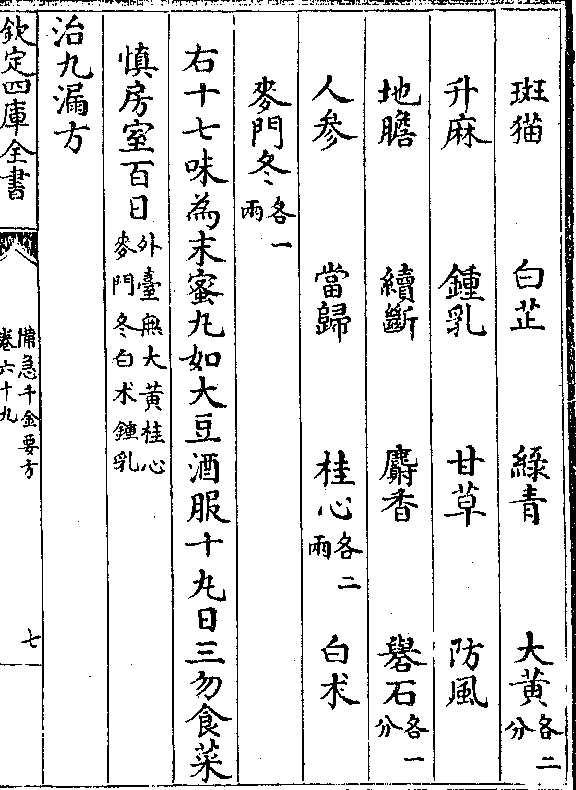 斑猫 白芷 綠青 大黄各二分
升麻 鍾乳 甘草 防風
地膽 續斷 麝香 礜石各一分
人參 當歸 桂心各二兩 白术
麥門冬各一兩
右十七味為末蜜丸如大豆酒服十丸日三勿食菜
慎房室百日外臺無大黄桂心麥門冬白术鍾乳
治九漏方
欽定四庫全書
備急千金要方
卷六十九
七